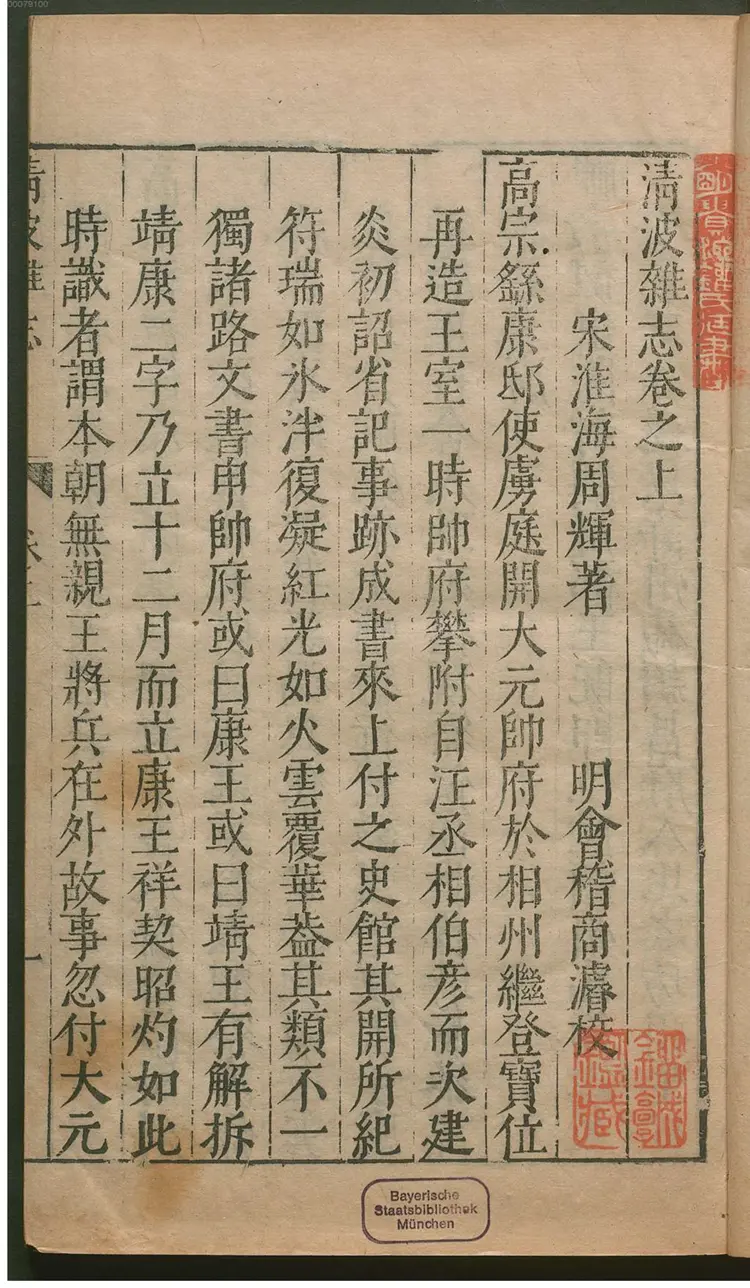 00079100
清波雜志卷之上
宋淮海周輝著 明會稽商濬校
高宗繇康邸使虜庭開大元帥府於相州繼登寶位
再造王室一時帥府攀附自汪丞相伯彥而次建
炎初詔省記事跡成書來上付之史館其開所紀
符瑞如氷泮復凝紅光如火雲覆華葢其類不一
獨諸路文書申帥府或曰康王或曰靖王有解拆
靖康二字乃立十二月而立康王祥契昭灼如此
時識者謂本朝無親王將兵在外故事忽付大元
清波雜志
一
Bayerische
Staatsbibliothek
München